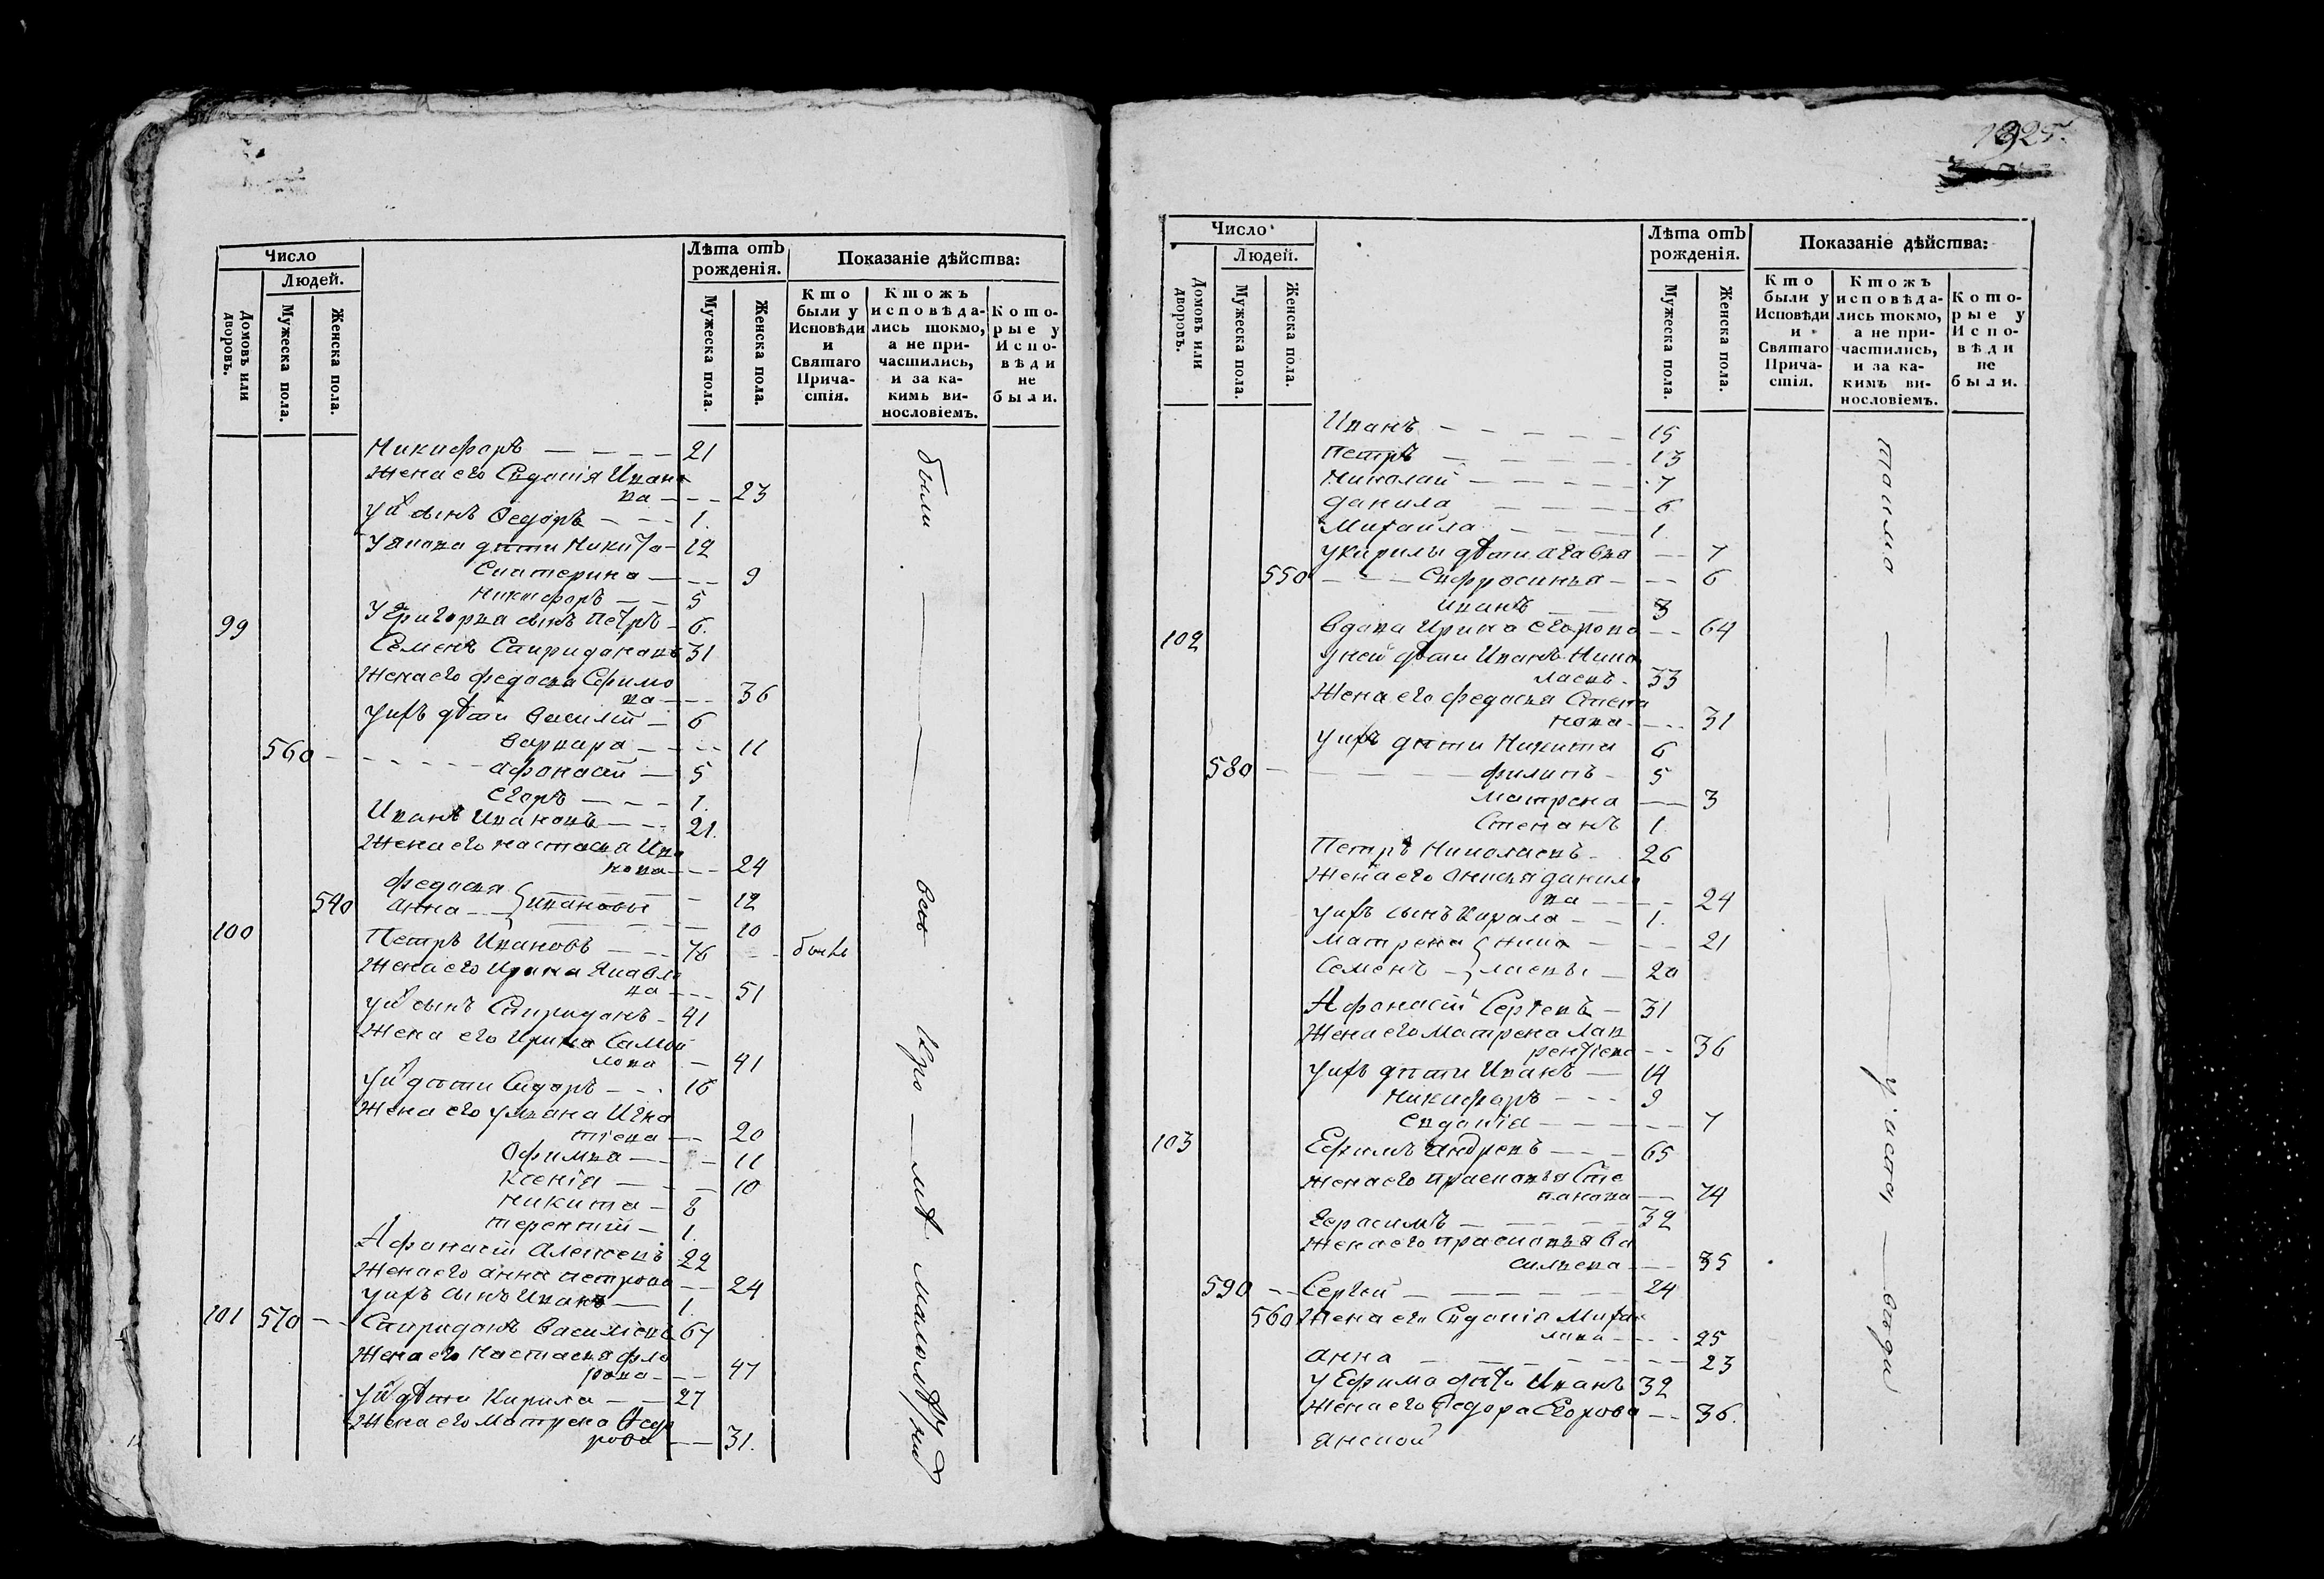 Число
Людей.
Домовъ или дворовъ.
Мужеска пола.
Женска пола.
Лѣта отъ рожденія.
Мужеска пола.
Женска пола.
Показаніе дѣйства:
Кто были у Исповѣди и Святаго Причастія.
Ктожъ исповѣдались токмо, а не причастились, и за какимъ винословіемъ.
Которые у Исповѣди не были.
Никифоръ 21
Жена его Евдокія Ивано
ва 23
сынъ Ѳедоръ 1.
дѣти Никита 12
Екатерина 9
Никифоръ 5
У Григорья сынъ Петръ 6.
99 Семенъ Спиридоновъ 31
Жена его Федосья Ефимо
ва 36
У ихъ дѣти Василій 6
Варвара 11
560 Афонасій 5
Егоръ 1.
Иванъ Ивановъ 21.
Жена его Настасья Ива
нова 24
Федосья 12
540 Анна Ивановы 10
100 Петръ Ивановъ 76 былъ
Жена его Ирина
ва 51
сынъ Спиридонъ 41
Жена его Ирина Самой
лова 41
дѣти Сидоръ 18
Жена его Ульяна Игна
тіева 20
Офимья 11
Ксенія 10
Никита 8
Терентій 1.
Афонасій Алексеевъ 22
Жена его Анна Петрова 24
У ихъ сынъ Иванъ 1.
101 570 Спиридонъ Василіевъ 67
Жена его Настасья Фло
рова 47
дѣти Кирила 27
Жена его Матрена Ѳедо
рова 31.
были
всѣ
Кро
мѣ
малолѣтнихъ
1825.
Число
Людей.
Домовъ или дворовъ.
Мужеска пола.
Женска пола.
Лѣта отъ рожденія.
Мужеска пола.
Женска пола.
Показаніе дѣйства:
Кто были у Исповѣди и Святаго Причастія.
Ктожъ исповѣдались токмо, а не причастились, и за какимъ винословіемъ.
Которые у Исповѣди не были.
Иванъ 15
Петръ 13
Николай 7
Данила 6
Михаила 1.
У Кирилы дѣти 7
550 Ефросинья 6
Иванъ 3
102 Вдова Ирина Егорова 64
У ней дѣти Иванъ Нико
лаевъ 33
Жена его Федосья Степа
нова 31
У ихъ дѣти Никита 6
580 Филипъ 5
Матрена 3
Степанъ 1.
Петръ Николаевъ 26
Жена его Анисья Данило
ва 24
У ихъ сынъ Кирила 1.
Матрена Нико 21
Семенъ лаевы 20
Афонасій Сергеевъ 31
Жена его Матрена Лав
рентіева 36
У ихъ дѣти Иванъ 14
Никифоръ 9
Евдокія 7
103 Ефимъ Андреевъ 65
Жена его Прасковья Сте
панова 74
Герасимъ 32
Жена его Прасковья Ва
сильева 35
590 Сергей 24
560 Жена его Евдокія Михай
лова 25
Анна 23
У Ефима дѣти Иванъ 32
Жена его Ѳедора Егорова 36.